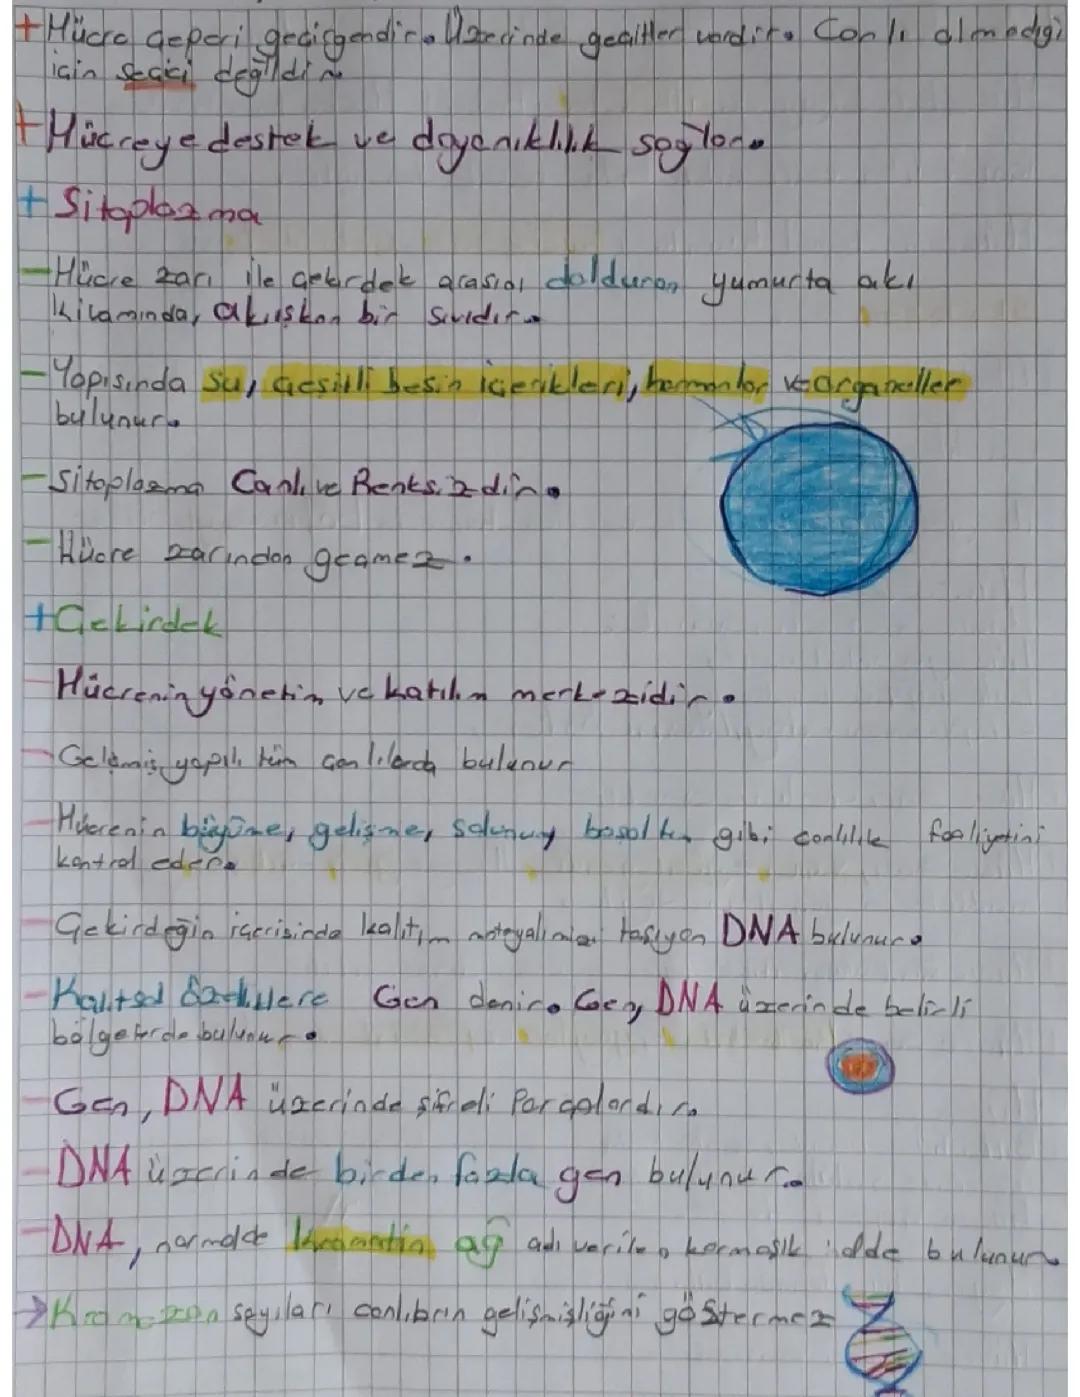 + Hücre çeperi geçirgendir. Üzerinde geçitler vardır. Canlı olmadığı
için seçici değildir
+ Hücreye destek ve dayanıklılık sağlar.
+ Sitoplazma
- Hücre zarı ile çekirdek arasını dolduran yumurta akı
kıvamında, akışkan bir sıvıdır.
- Yapısında su, çeşitli besin içerikleri, hormonlar ve organeller
bulunur.
- Sitoplazma Canlı ve Renksizdir.
- Hücre zarından geçmez.
+ Çekirdek
- Hücrenin yönetim ve katılım merkezidir.
- Gelşmiş yapılı tüm canlılarda bulunur
- Hücrenin büyüme, gelişme, solunum boşaltım gibi canlılık faaliyetini
kontrol eder.
- Çekirdeğin içerisinde kalıtım taşıyan DNA bulunur.
- Kalıtsal özelliklere Gen denir. Gen, DNA üzerinde belirli
bölgelerde bulunur.
- Gen, DNA üzerinde şifreli Parçalardır.
- DNA üzerinde birden fazla gen bulunur.
- DNA, normalde kromatin ağ adı verilen karmaşık halde bulunur.
→ Kromozon sayıları canlıların gelişmişliğini göstermez